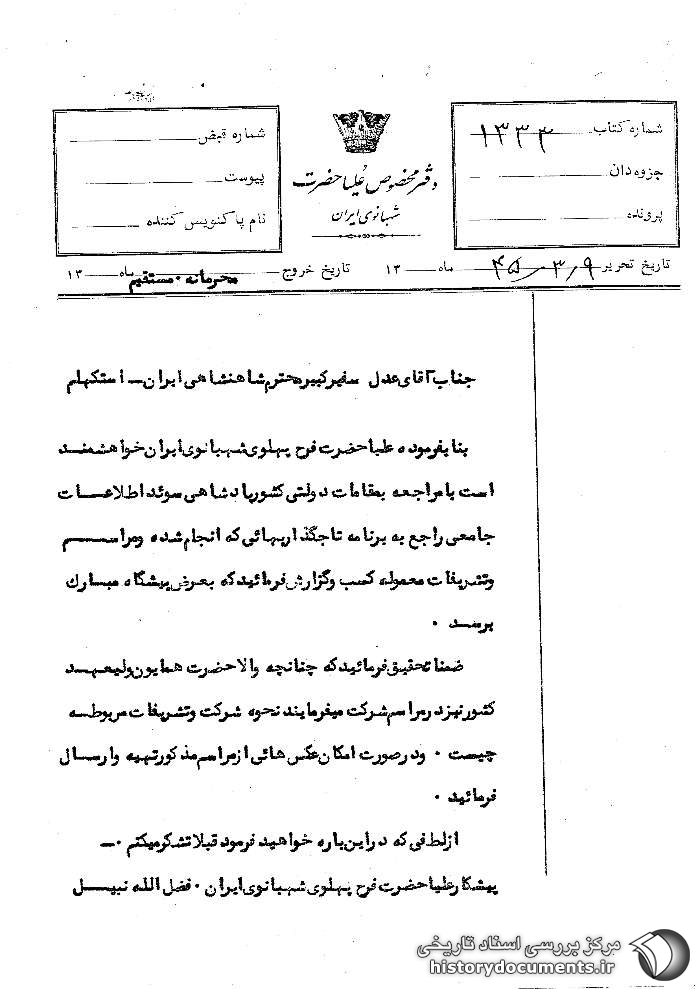 شماره کتاب ۱۳۳۳
جزوه‌دان
پرونده
دفتر مخصوص علیاحضرت
شهبانوی ایران
شماره قبض
پیوست
نام پاکنویس کننده
تاریخ تحریر ۴۵/۳/۹ ماه ۱۳
تاریخ خروج ماه ۱۳
محرمانه . مستقیم
جناب آقای عدل سفیرکبیر محترم شاهنشاهی ایران ـ استکهلم
بنا بفرموده علیاحضرت فرح پهلوی شهبانوی ایران خواهشمند
است با مراجعه بمقامات دولتی کشور پادشاهی سوئد اطلاعات
جامعی راجع به برنامه تاجگذاریهائی که انجام شده ومراسم
وتشریفات معموله کسب وگزارش فرمائید که بعرض پیشگاه مبارک
برسد .
ضمنا تحقیق فرمائید که چنانچه والاحضرت همایون ولیعهد
کشور نیز در مراسم شرکت میفرمایند نحوه شرکت وتشریفات مربوطه
چیست . ودر صورت امکان عکس هائی از مراسم مذکور تهیه وارسال
فرمائید .
از لطفی که در این باره خواهید فرمود قبلا تشکر میکنم .ـ
پیشکار علیاحضرت فرح پهلوی شهبانوی ایران . فضل الله نبیل
مرکز بررسی اسناد تاریخی
historydocuments.ir